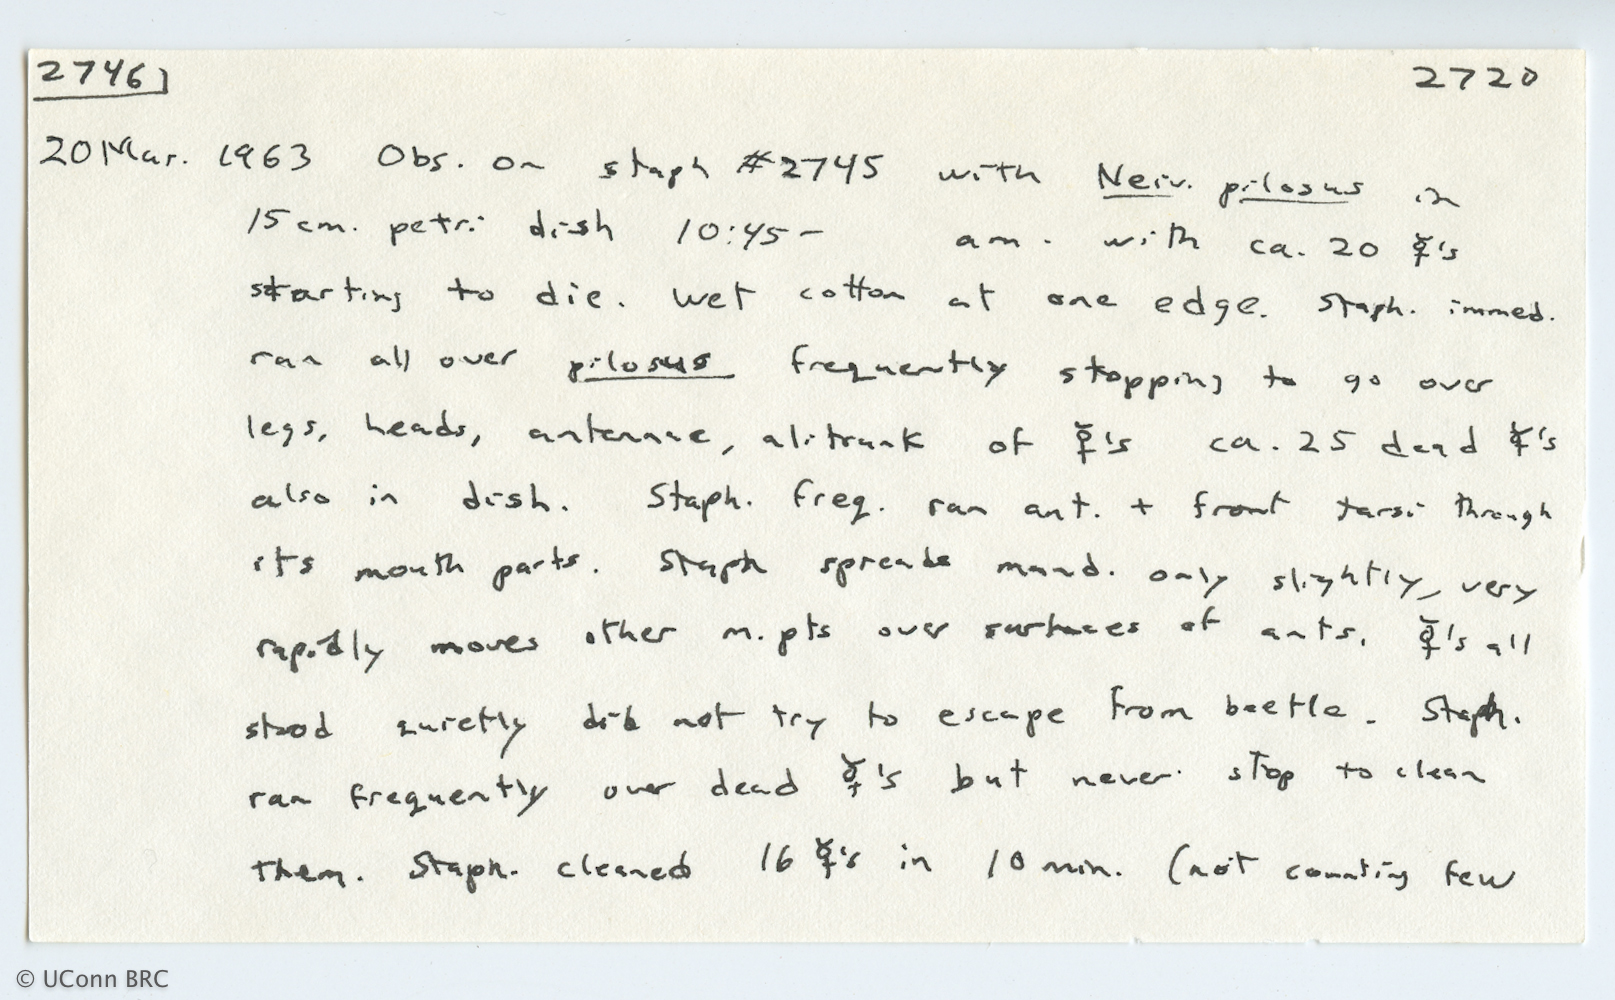 2746] 2720
20 Mar. 1963 Obs. on staph #2745 with Neiv. pilosus in
15 cm. petri dish 10:45 – am. with ca. 20 ☿'s
starting to die. Wet cotton at one edge. Staph. immed.
ran all over pilosus frequently stopping to go over
legs, heads, antennae, alitrunk of ☿'s ca. 25 dead ☿'s
also in dish. Staph. freq. ran ant. + front tarsi through
its mouth parts. Staph spreads mand. only slightly, very
rapidly moves other m. pts over surfaces of ants. ☿'s all
stood quietly did not try to escape from beetle. Staph.
ran frequently over dead ☿'s but never stop to clean
them. Staph. cleaned 16 ☿'s in 10 min. (not counting few
© UConn BRC